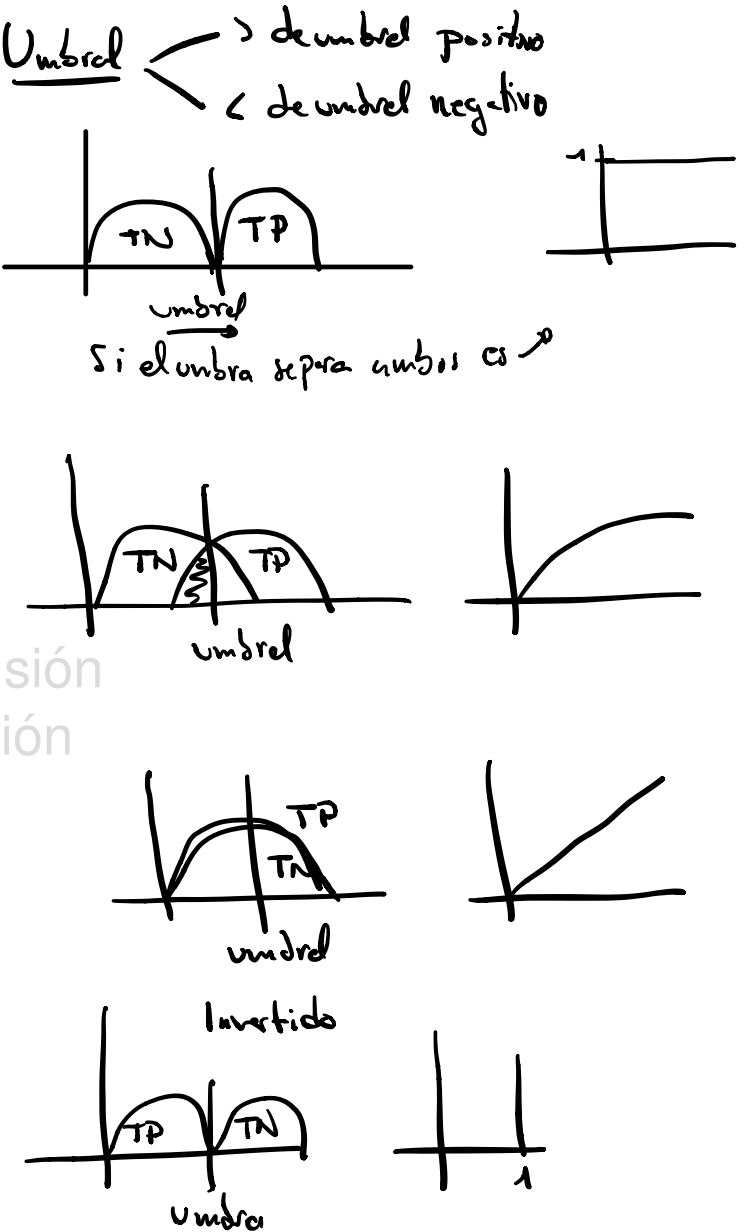 Umbral
> de umbral positivo
< de umbral negativo
TN TP
1
umbral
Si el umbra separa ambos es
TN TP
umbral
sión
ión
TP
TN
umbral
Invertido
TP TN
1
Umbra